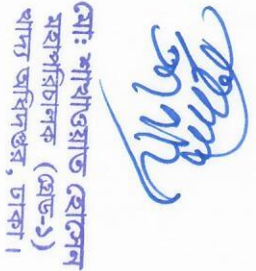 মোঃ সাখাওয়াত হোসেন
মহাপরিচালক (গ্রেড-১)
খাদ্য অধিদপ্তর, ঢাকা।